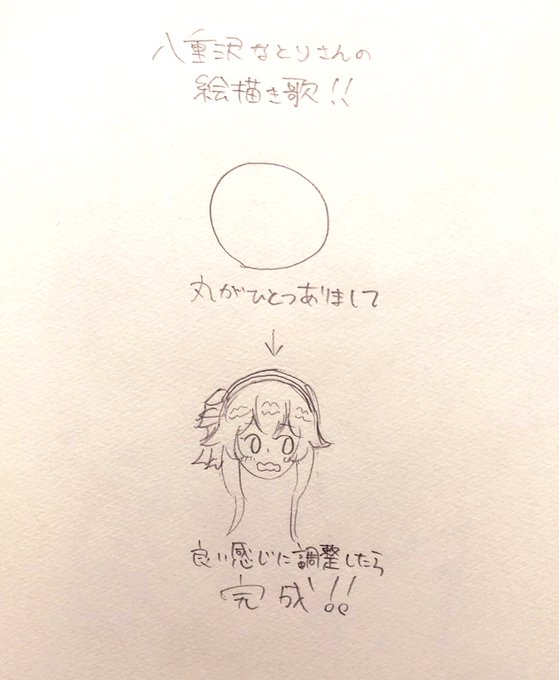 八重沢なとりさんの
絵描き歌!!
丸がひとつありまして
良い感じに調整したら
完成!!